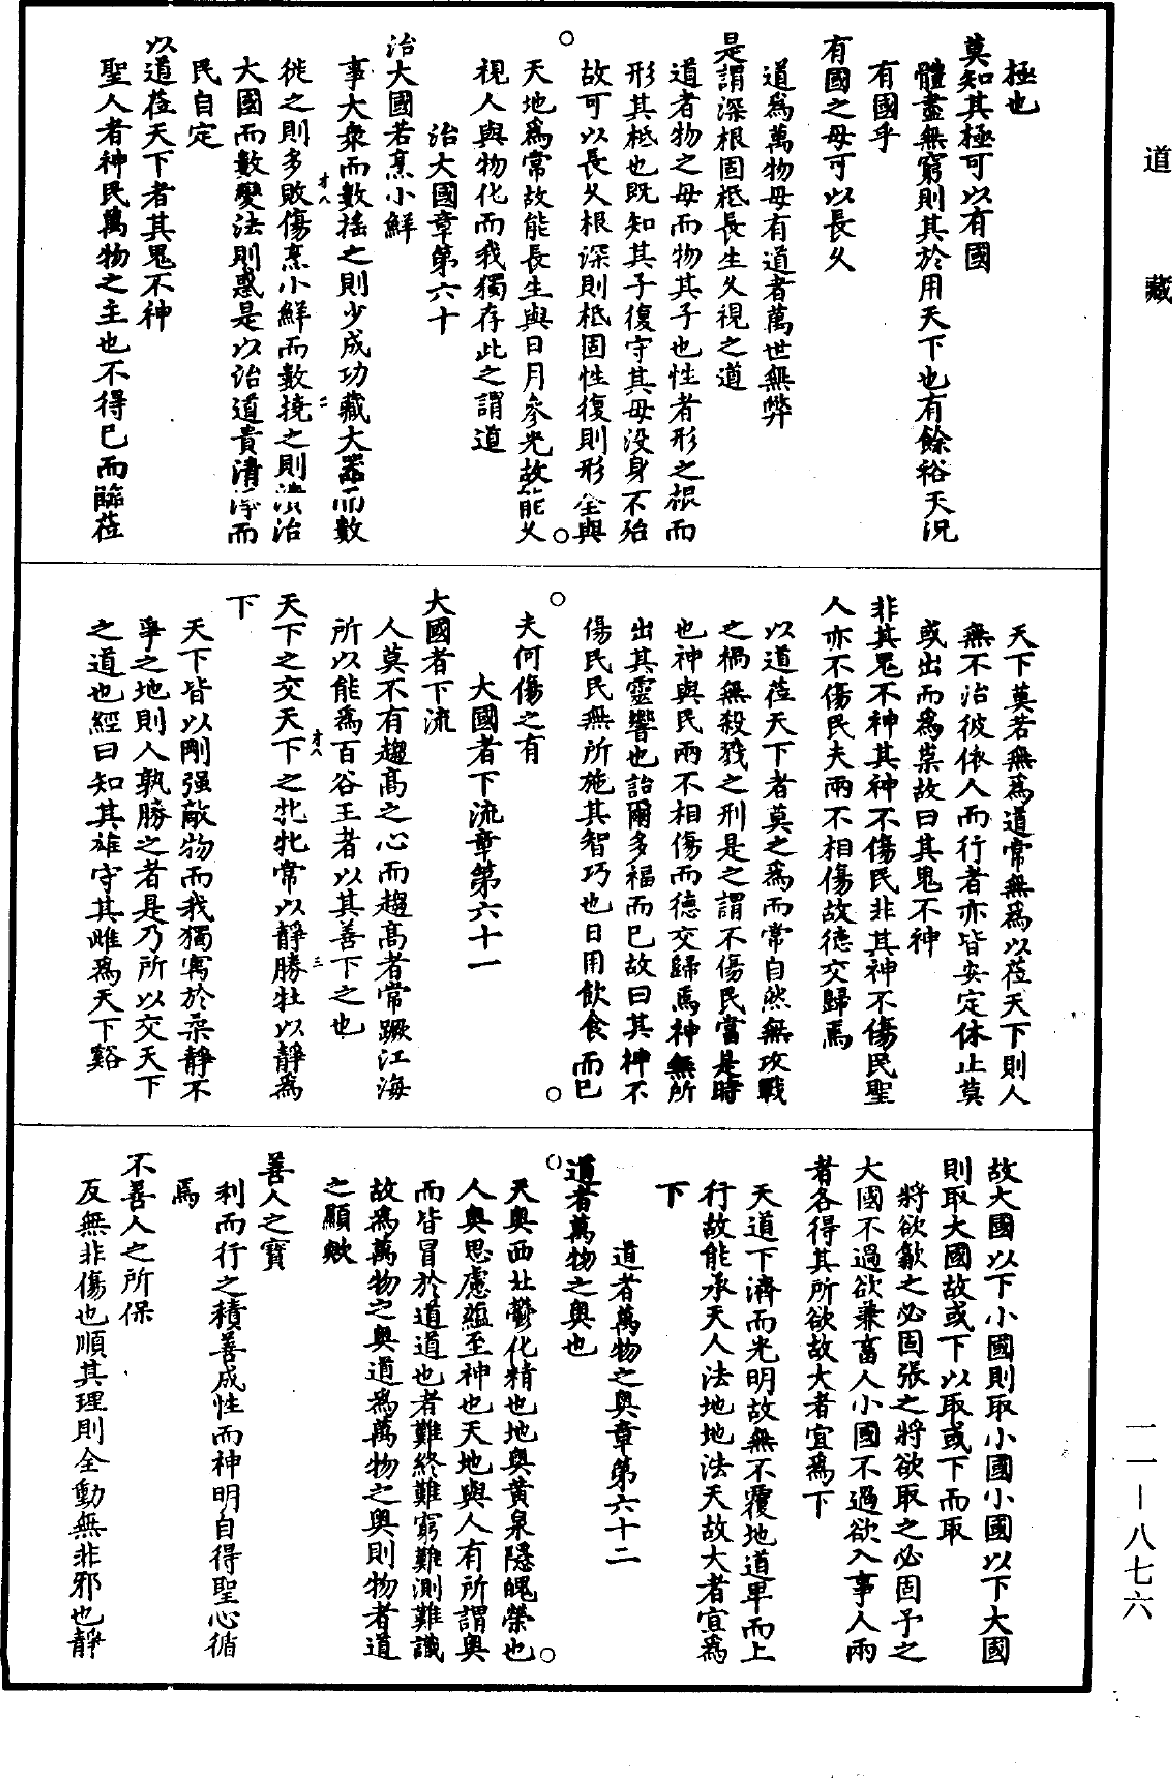 道藏
極也
莫知其極可以有國
體盡無窮則其於用天下也有餘裕天況
有國乎
有國之母可以長久
道爲萬物母有道者萬世無弊
是謂深根固柢長生久視之道
道者物之母而物其子也性者形之根而
形其柢也既知其子復守其母没身不殆
故可以長久根深則柢固性復則形全與
天地爲常故能長生與日月參光故能久
視人與物化而我獨存此之謂道
治大國章第六十
治大國若烹小鮮
事大衆而數搖之則少成功藏大器而數
徙之則多敗傷烹小鮮而數撓之則潰治
大國而數變法則惑是以治道貴清淨而
民自定
以道莅天下者其鬼不神
聖人者神民萬物之主也不得已而臨莅
天下莫若無爲道常無爲以莅天下則人
無不治彼依人而行者亦皆安定休止莫
或出而爲祟故曰其鬼不神
非其鬼不神其神不傷民非其神不傷民聖
人亦不傷民夫兩不相傷故德交歸焉
以道莅天下者莫之爲而常自然無攻戰
之禍無殺戮之刑是之謂不傷民當是時
也神與民兩不相傷而德交歸焉神無所
出其靈響也詒爾多福而已故曰其神不
傷民民無所施其智巧也日用飲食而已
夫何傷之有
大國者下流章第六十一
大國者下流
人莫不有趨高之心而趨高者常蹶江海
所以能爲百谷王者以其善下之也
天下之交天下之牝牝常以靜勝牡以靜爲
下
天下皆以剛强敵物而我獨寓於柔靜不
爭之地則人孰勝之者是乃所以交天下
之道也經曰知其雄守其雌爲天下谿
故大國以下小國則取小國小國以下大國
則取大國故或下以取或下而取
將欲歙之必固張之將欲取之必固予之
大國不過欲兼畜人小國不過欲入事人兩
者各得其所欲故大者宜爲下
天道下濟而光明故無不覆地道卑而上
行故能承天人法地地法天故大者宜爲
下
道者萬物之奥章第六十二
道者萬物之奥也
天奥西北鬱化精也地奥黄泉隱魄榮也
人奥思慮蘊至神也天地與人有所謂奥
而皆冒於道道也者難終難窮難測難識
故爲萬物之奥道爲萬物之奥則物者道
之顯歟
善人之寶
利而行之積善成性而神明自得聖心循
焉
不善人之所保
反無非傷也順其理則全動無非邪也靜
一一一八七六